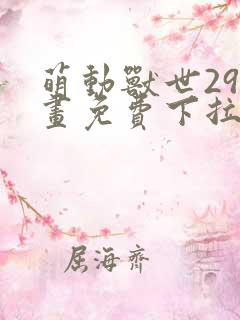 萌動獸世29
畫免費下拉
屈海齊